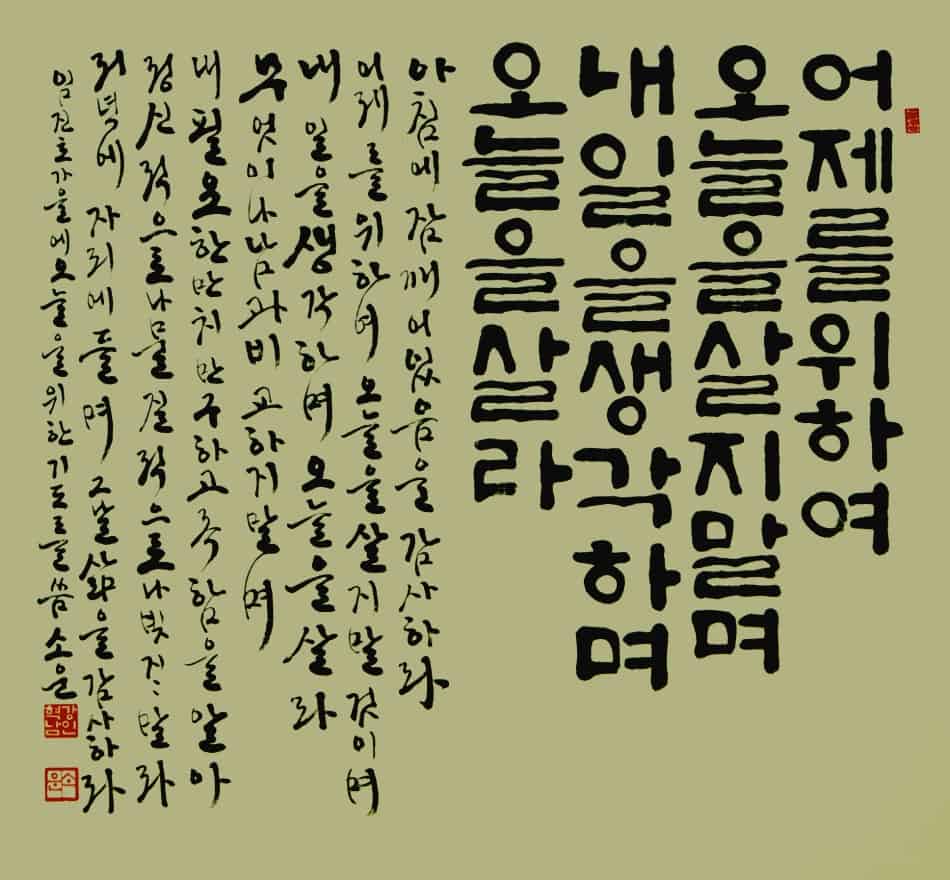 어제를위하여
오늘을살지말며
내일을생각하며
오늘을살라
아침에잠깨어있음을감사하라
어제를위하여 오늘을살지말것이며
내일을생각하며오늘을살라
무엇이나남과비교하지말며
내필요한만치만구하고족함을알아
정신적으로나물질적으로나빚지〻말라
저녁에 자리에들며 그날삶을감사하라
임진초가을에오늘을위한기도를씀 소운
강인
혁남
소운